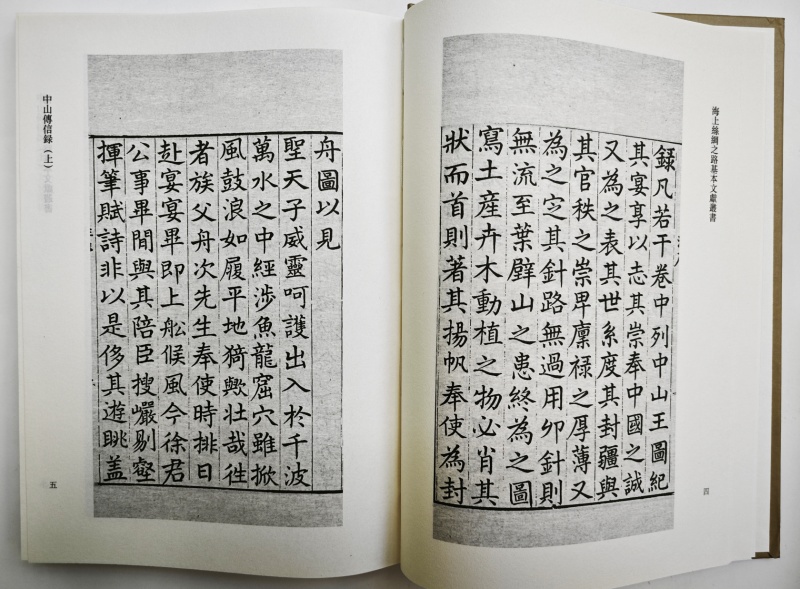 海上絲綢之路基本文獻叢書
錄凡若干卷中列中山王圖紀
其宴享以志其崇奉中國之誠
又為之表其世系度其封疆與
其官秩之崇卑廩禄之厚薄又
為之定其針路無過用卯針則
無流至葉壁山之患終為之圖
寫土産卉木動植之物必肖其
狀而首則著其揚帆奉使為封
四
舟圖以見
聖天子威靈呵護出入於千波
萬水之中經涉魚龍窟穴雖掀
風鼓浪如履平地猗歟壯哉徃
者族父舟次先生奉使時排日
赴宴宴畢即上舩候風今徐君
公事畢間與其陪臣搜巖剔壑
揮筆賦詩非以是侈其遊眺盖
中山傳信録（上）
五